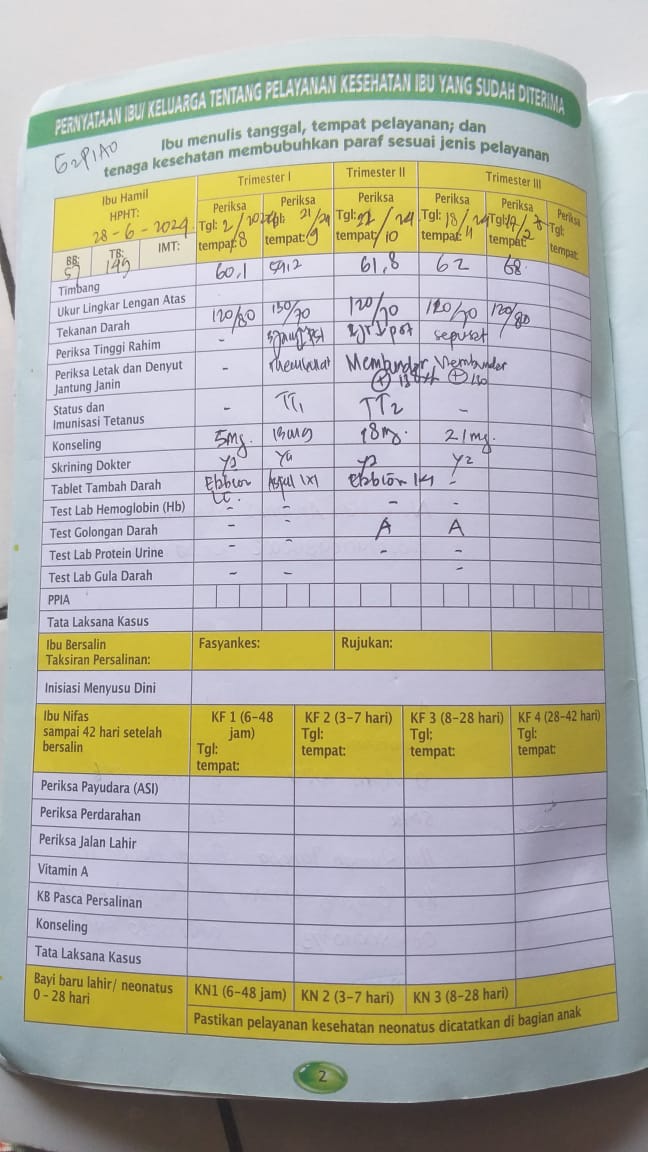 PERNYATAAN IBU/ KELUARGA TENTANG PELAYANAN KESEHATAN IBU YANG SUDAH DITERIMA
G2P1A0
Ibu menulis tanggal, tempat pelayanan; dan
tenaga kesehatan membubuhkan paraf sesuai jenis pelayanan
Ibu Hamil
HPHT:
28-6-2024
Trimester I Trimester II Trimester III
Periksa Periksa Periksa Periksa Periksa Periksa
Tgl: Tgl: Tgl: Tgl: 18/ Tgl: Tgl:
tempat: 8 tempat: 9 tempat: 10 tempat: 11 tempat: 2 tempat:
BB: 57 TB: 149 IMT:
Timbang 60,1 59,2 61,8 62 68
Ukur Lingkar Lengan Atas
Tekanan Darah 120/80 130/70 120/70 120/70 120/80
Periksa Tinggi Rahim - sepusat
Periksa Letak dan Denyut
Jantung Janin - Membundar Membundar
Status dan
Imunisasi Tetanus - TT1 TT2 -
Konseling 5mg. 13mg 18mg. 21mg.
Skrining Dokter
Tablet Tambah Darah - 
Test Lab Hemoglobin (Hb) - - - -
Test Golongan Darah - - A A
Test Lab Protein Urine - - - -
Test Lab Gula Darah - - -
PPIA
Tata Laksana Kasus
Ibu Bersalin
Taksiran Persalinan:
Fasyankes: Rujukan:
Inisiasi Menyusu Dini
Ibu Nifas
sampai 42 hari setelah
bersalin
KF 1 (6-48
jam)
Tgl:
tempat:
KF 2 (3-7 hari)
Tgl:
tempat:
KF 3 (8-28 hari)
Tgl:
tempat:
KF 4 (28-42 hari)
Tgl:
tempat:
Periksa Payudara (ASI)
Periksa Perdarahan
Periksa Jalan Lahir
Vitamin A
KB Pasca Persalinan
Konseling
Tata Laksana Kasus
Bayi baru lahir/ neonatus
0 - 28 hari
KN1 (6-48 jam) KN 2 (3-7 hari) KN 3 (8-28 hari)
Pastikan pelayanan kesehatan neonatus dicatatkan di bagian anak
2